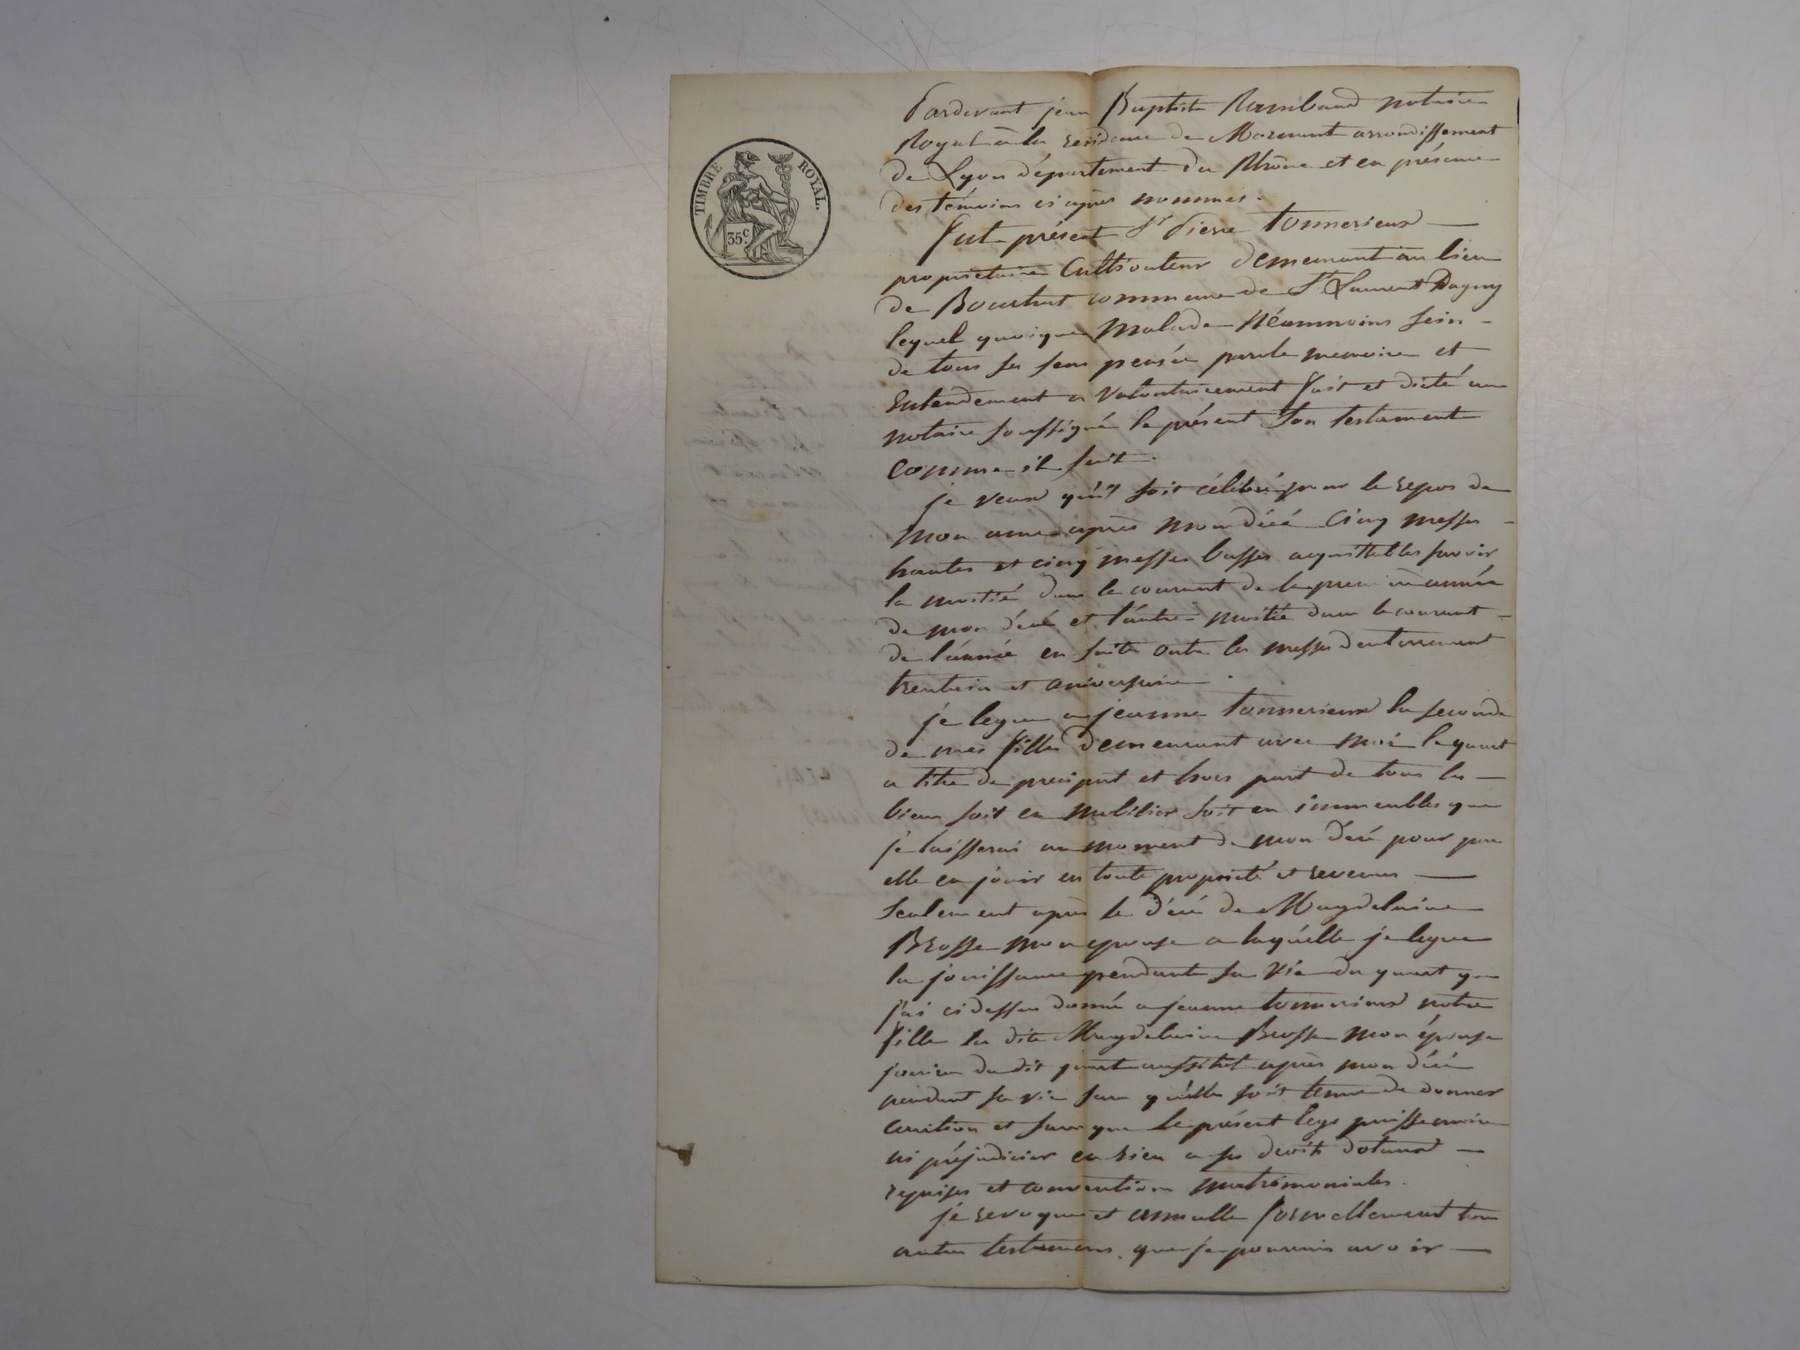 TIMBRE ROYAL.
35c.
Pardevant jean Baptiste Rambaud notaire
Royal à la résidence de Mornant arrondissement
de Lyon département du Rhône et en présence
des témoins ci après nommés.
Fut présent Sr Pierre Tonnerieux
propriétaire Cultivateur demeurant au lieu
de commune de St Laurent Dagny
lequel quoique Malade Néammoins sein
de tous ses sens pensée parole memoire et
Entendement a Volontairement fait et dicté au
notaire soussigné le présent son testament
comme il suit.
je veux qu'il soit célébré pour le repos de
Mon ame après mon décé cinq messes
hautes et cinq messes basses acquittables savoir
la moitié dans le courant de la premiere année
de mon décé et l'autre moitié dans le courant
de l'année en suite outre les messes denterrement
trentain et aniversaire.
je legue a jeanne tonnerieux la seconde
de mes filles demeurant avec moi le quart
a titre de preciput et hors part de tous les
biens soit en mobilier soit en immeubles que
je laisserai au moment de mon décé pour par
elle en jouir en toute propriété et revenus
Seulement après le décé de Magdelaine
Brosse mon epouse a laquélle je legue
la jouissance pendant sa vie du quart que
j'ai ci dessus donné a jeanne tonnerieux notre
fille la dite Magdelaine Brosse mon épouse
jouira du dit quart aussitot après mon décé
pendant sa vie sans qu'elle soit tenue de donner
caution et sans que le présent legs puisse nuire
ni préjudicier en rien a ses droits dotaux
reprises et conventions matrimoniales.
je revoque et annulle formellement tous
autres testamens que je pourrais avoir